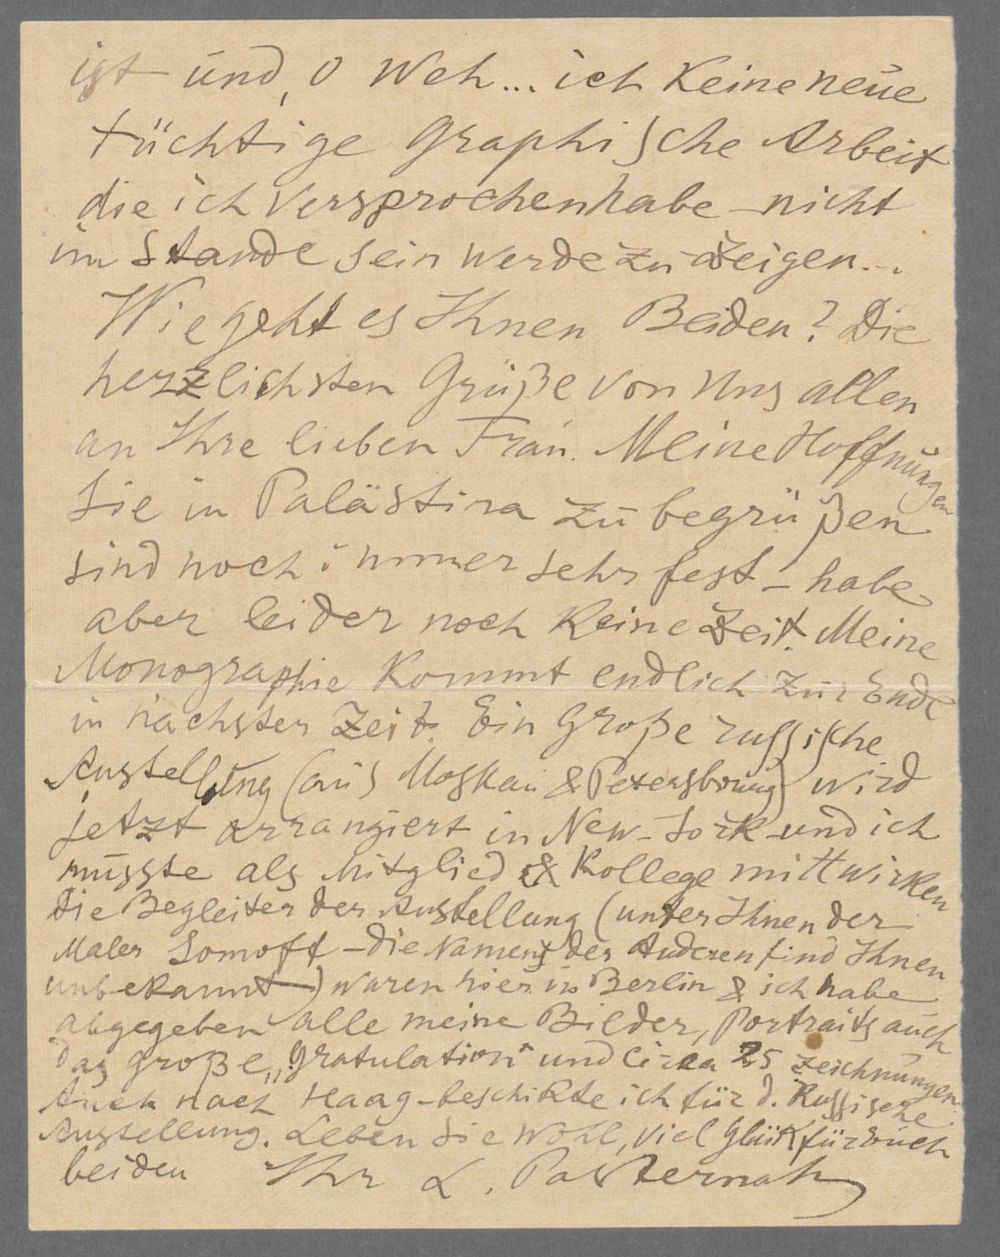 ist und, o Weh... ich Keine neue
tüchtige Graphische Arbeit
die ich Versprochen habe – nicht
im Stande sein werde zu zeigen...
Wie geht es Ihnen Beiden? Die
herzlichsten Grüße von Uns allen
an Ihre lieben Frau. Meine Hoffnungen
Sie in Palästina zu begrüßen
sind noch immer sehr fest – habe
aber leider noch Keine Zeit. Meine
Monographie Kommt endlich zur Ende
in nächster Zeit. Ein Große russische
Austellung (aus Moskau & Petersbourg) wird
jetzt arrangiert in New-York und ich
müsste als Mitglied & Kollege mittwirken
Die Begleiter der Austellung (unter Ihnen der
Maler Somoff – die Namen der Anderen sind Ihnen
unbekannt) waren hier in Berlin & ich habe
abgegeben alle meine Bilder, Portraits auch
das große „Gratulation" und circa 25 Zeichnungen
Auch nach Haag beschikte ich für d. Russische
Austellung. Leben Sie wohl, viel Glük für Euch
beiden Ihr L. Pasternak